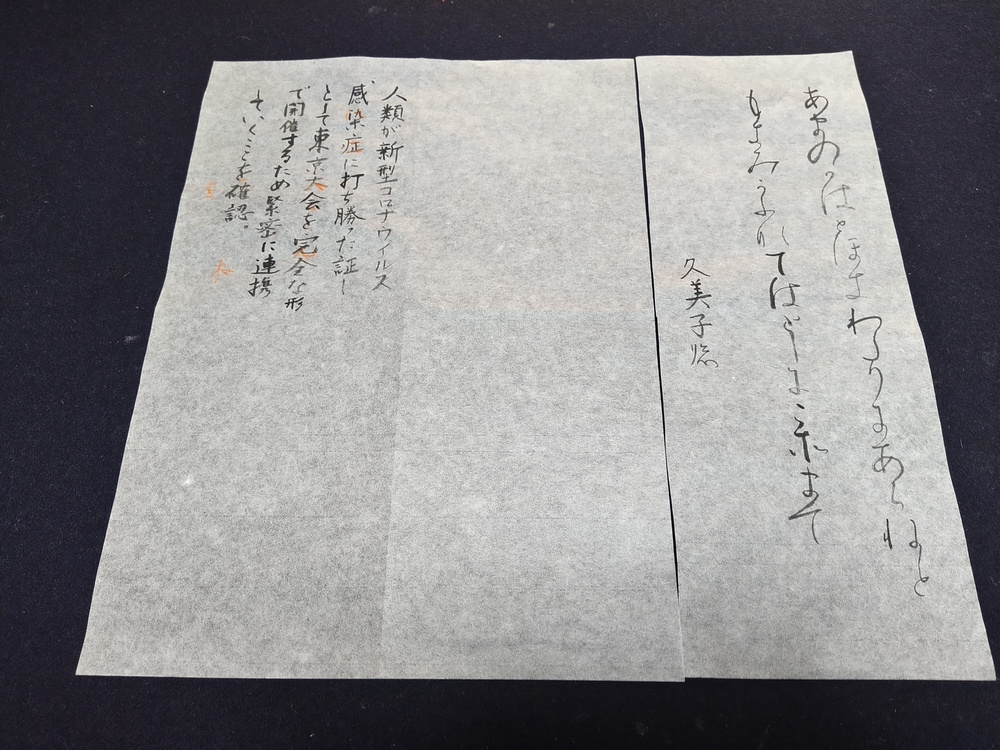 あまのかはとほきわたりにあらねと
もきみかふなてはとしにこそまて
久美子臨
人類が新型コロナウィルス
感染症に打ち勝った証し
として東京大会を完全な形
で開催するため緊密に連携
していくことを確認。